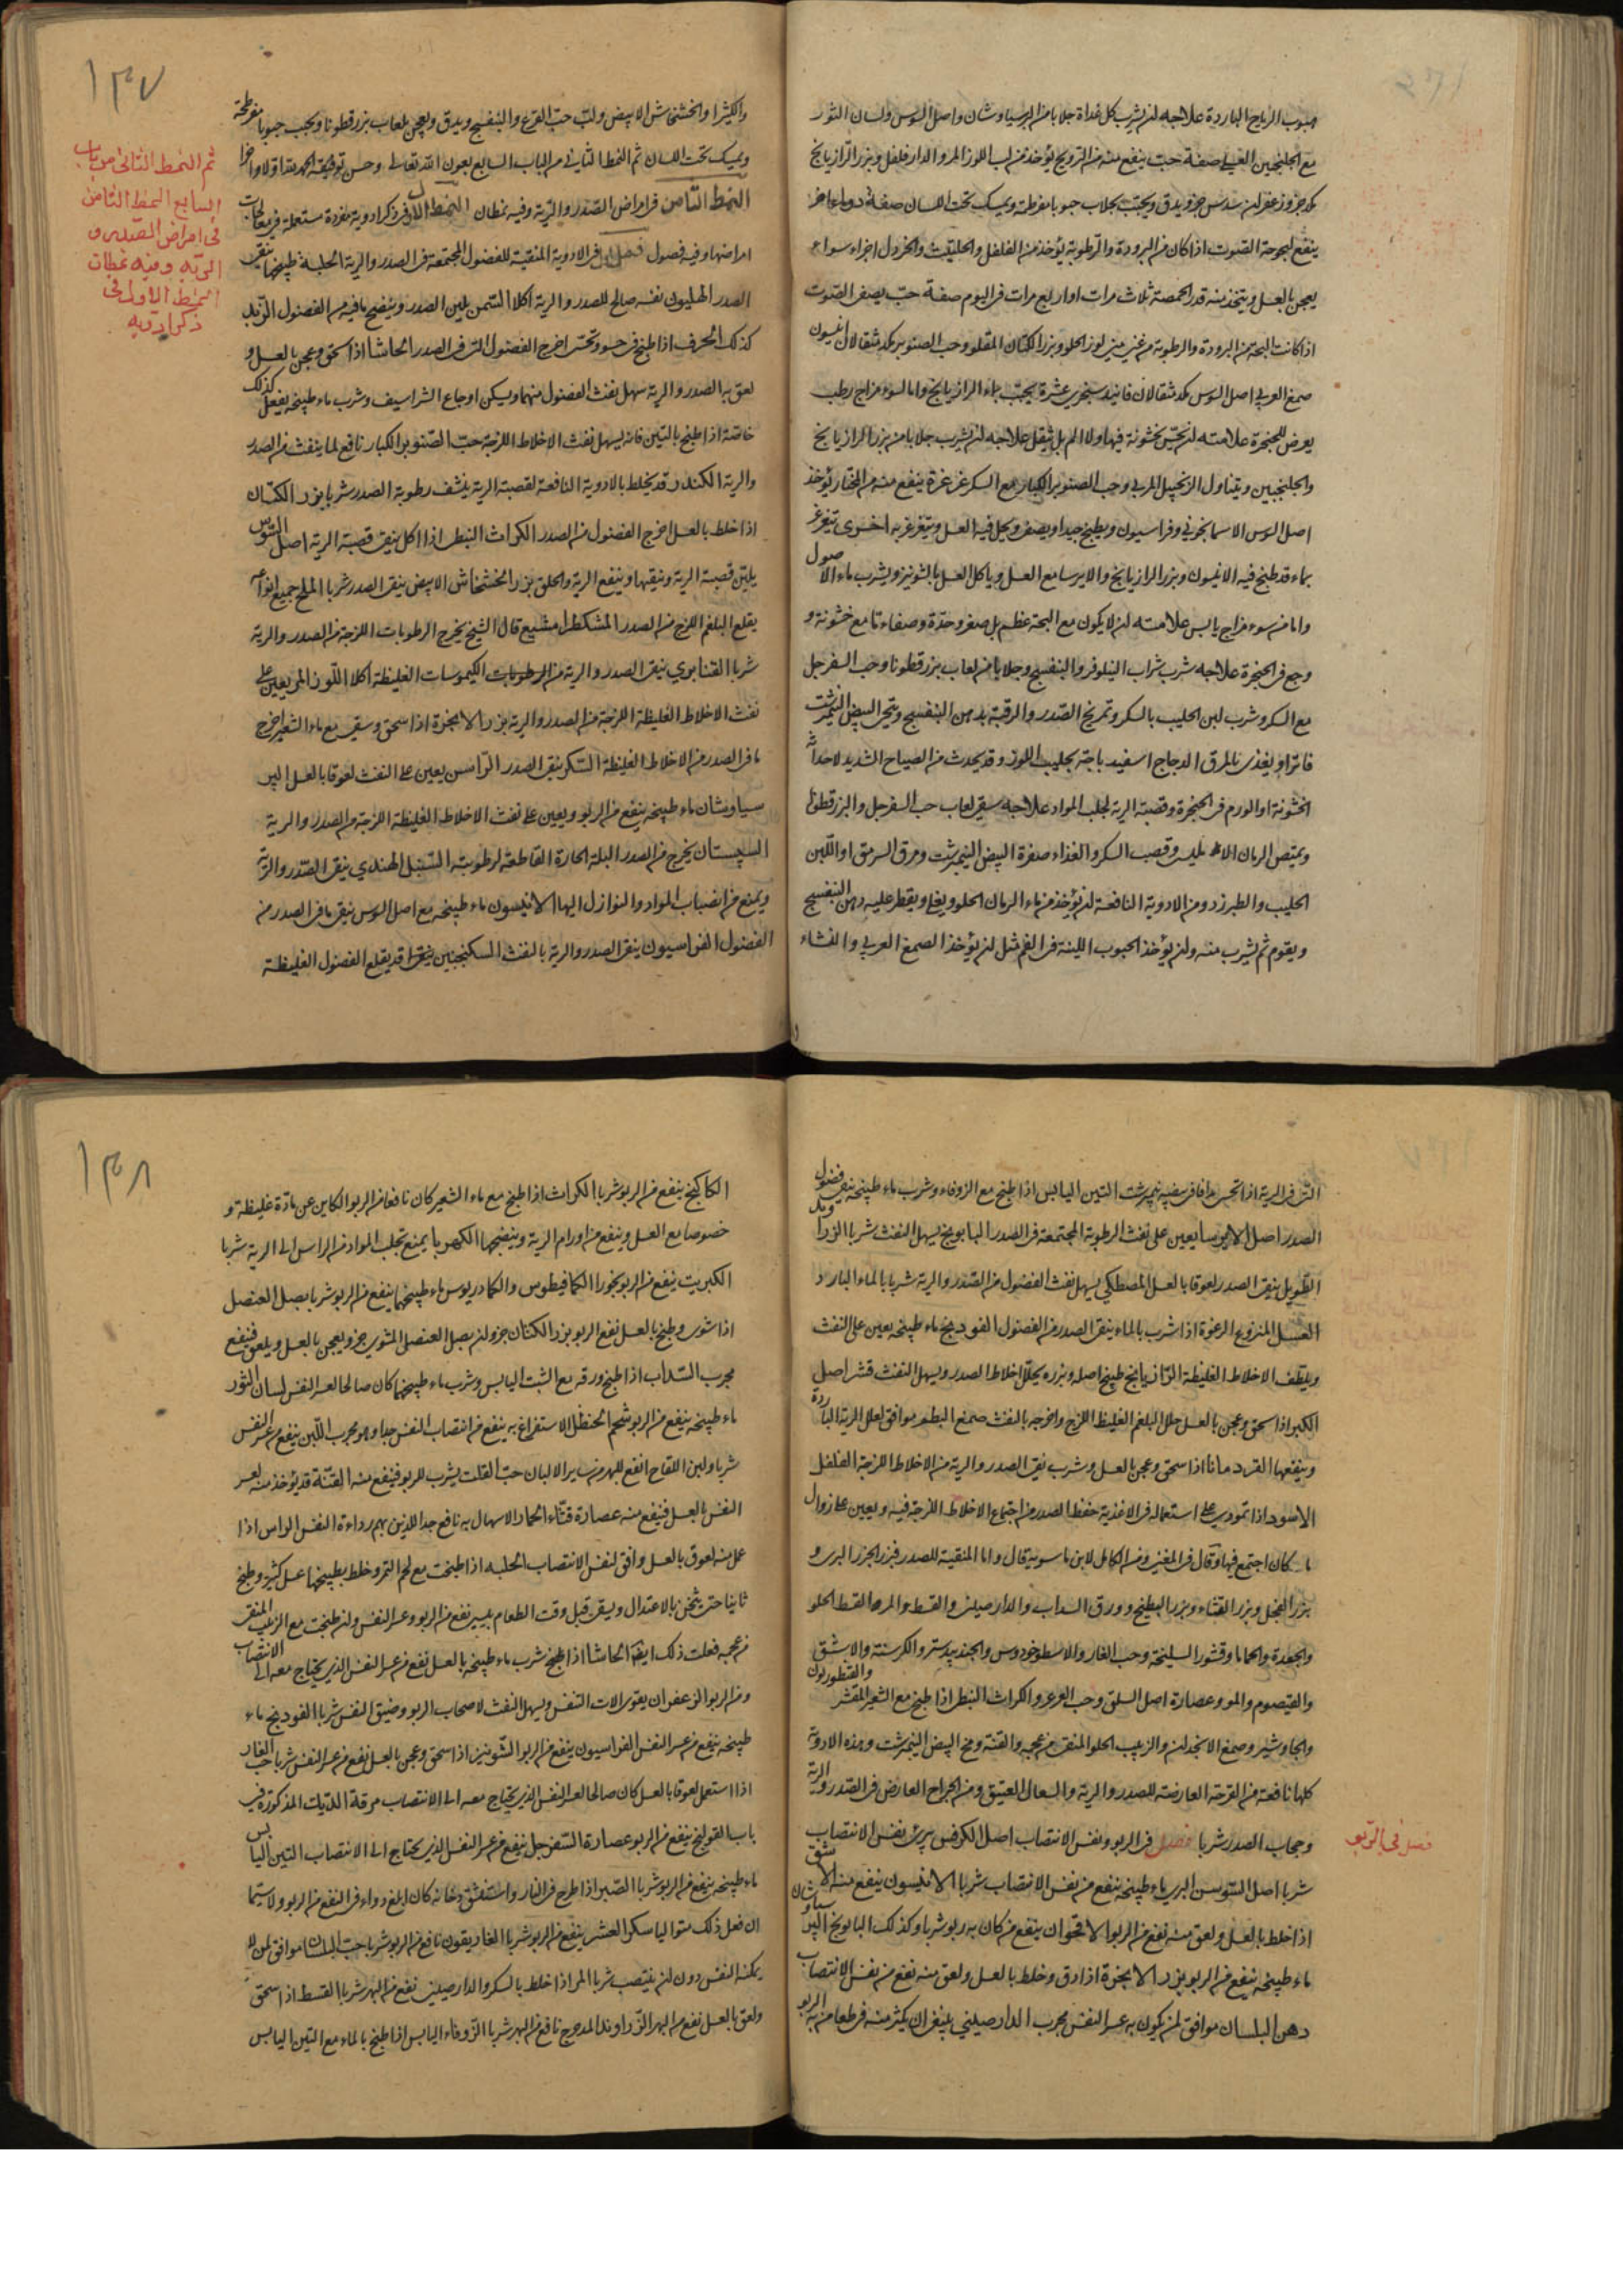 هبوب الرياح الباردة علاجه ان يشرب كل غداة جلابا من البرسياوشان واصل السوس ولسان الثور
مع الجلنجبين العسلي صفة حب ينفع منه من الترويح يؤخذ من لب اللوز المر والدارفلفل وبزر الرازيانج
مكد جزو زعفران سدس جزو يدق ويحبب بجلاب حبوبا مفرطحة ويمسك تحت اللسان صفة دواء اخر
ينفع لبحوحة الصوت اذا كان من البرودة والرطوبة يؤخذ من الفلفل والحلتيت والخردل اجزاء سواء
يعجن بالعسل ويتخذ منه قدر الحمصة ثلاث مرات او اربع مرات في اليوم صفة حب يصفي الصوت
اذا كانت البحة من البرودة والرطوبة من غير لوز الحلو وبزر الكتان المقلو وحب الصنوبر مكد مثقالان انيسون
صمغ العربي اصل السوس مكد مثقالان فانيد سجزي عشرة يحبب بماء الرازيانج واما لسوء مزاج رطب
يعرض للحنجرة علامته ان يحس بخشونة فيها ولا الم بل ثقيل علاجه ان يشرب جلابا من بزر الرازيانج
والجلنجبين ويتناول الزنجبيل المربى وحب الصنوبر الكبار مع السكر غرغرة ينفع منه من المختار يؤخذ
اصل السوس الاسمانجوني وفراسيون ويطبخ جيدا ويصفى ويحل فيه العسل ويتغرغر به اخرى تتغرغر
بماء قد طبخ فيه الانيسون وبزر الرازيانج والايرسا مع العسل وياكل العسل بالشونيز ويشرب ماء الاصول
واما من سوء مزاج يابس علامته ان لا يكون مع البحة عظم بل صغر وحدة وصفاء تا مع خشونة و
وجع في الحنجرة علاجه شرب شراب النيلوفر والبنفسج وجلابا من لعاب بزر قطونا وحب السفرجل
مع السكر وشرب لبن الحليب بالسكر وتمريخ الصدر والرقبة بدهن البنفسج ويتحسى البيض النيمرشت
فاترا ويغذى بالمرق الدجاج اسفيدباجة بحليب اللوز وقد يحدث من الصياح الشديد لاحداثه
الخشونة او الورم في الحنجرة وقصبة الرية لجلب المواد علاجه سقي لعاب حب السفرجل والبزرقطونا
ويمتص الرمان الامليسي وقصب السكر والغذاء صفرة البيض النيمرشت ومرق السرمق او اللبن
الحليب والطبرزد ومن الادوية النافعة ان يؤخذ من ماء الرمان الحلو ويغلي ويقطر عليه دهن البنفسج
ويقوم ثم يشرب منه وان يؤخذ الحبوب اللينة في الفم مثل ان يؤخذ الصمغ العربي والنشاء
١٣٧
والكثيرا والخشخاش الابيض ولب حب القرع والبنفسج ويدق ويعجن بلعاب بزر قطونا ويحبب حبوبا مفرطحة
ويمسك تحت اللسان ثم النمط الثاني من الباب السابع بعون الله تعالى وحسن توفيقه الحمد لله اولا واخرا
النمط الثامن في امراض الصدر والرية وفيه نمطان النمط الاول في ذكر ادوية مفردة مستعملة في معالجات
امراضها وفيه فصول فصل في الادوية المنقية للفضول المجتمعة في الصدر والرية الحلبة طبيخها ينقي
الصدر الهليون نفسه صالح للصدر والرية اكلا السمن يلين الصدر وينضج ما فيه من الفضول الزبد
كذلك الحرف اذا طبخ في حسو وتحسى اخرج الفضول التي في الصدر الحاشا اذا سحق وعجن بالعسل و
لعق به الصدر والرية سهل نفث الفضول منهما ويسكن اوجاع الشراسيف وشرب ماء طبيخه يفعل كذلك
خاصة اذا طبخ بالتين فانه يسهل نفث الاخلاط اللزجة حب الصنوبر الكبار نافع لما ينفث من الصدر
والرية الكندر قد يخلط بالادوية النافعة لقصبة الرية ينشف رطوبة الصدر شربا بزر الكتان
اذا خلط بالعسل اخرج الفضول من الصدر الكراث النبطي اذا اكل ينقي قصبة الرية اصل السوس
يلين قصبة الرية وينقيها وينفع الرية والحلق بزر الخشخاش الابيض ينقي الصدر شربا الملح جميع انواعه
يقلع البلغم اللزج من الصدر المشكطرامشيع قال الشيخ يخرج الرطوبات اللزجة من الصدر والرية
شربا القنابري ينقي الصدر والرية من الرطوبات الكيموسات الغليظة اكلا اللوز المر يعين على
نفث الاخلاط الغليظة اللزجة من الصدر والرية بزر الانجرة اذا سحق وسقي مع ماء الشعير اخرج
ما في الصدر من الاخلاط الغليظة السكر ينقي الصدر الراسن يعين على النفث لعوقا بالعسل البر
سياوشان ماء طبيخه ينفع من الربو ويعين على نفث الاخلاط الغليظة اللزجة من الصدر والرية
السبستان يخرج من الصدر البلة الحارة القاطعة لرطوبته السنبل الهندي ينقي الصدر والرية
ويمنع من انصباب المواد والنوازل اليها الانيسون ماء طبيخه مع اصل السوس ينقي ما في الصدر من
الفضول الفراسيون ينقي الصدر والرية بالنفث السكنجبين ينقي قد يقلع الفضول الغليظة
ثم النمط الثاني من باب
السابع النمط الثامن
في امراض الصدر و
الرية وفيه نمطان
النمط الاول في
ذكر ادويه
التي في الرية اذا تحسى مدافا في بيضه نيمرشت التين اليابس اذا طبخ مع الزوفاء وشرب ماء طبيخه ينقي فضول
الصدر اصل الايرسا يعين على نفث الرطوبة المجتمعة في الصدر البابونج يسهل النفث شربا الزراوند
الطويل ينقي الصدر لعوقا بالعسل المصطكي يسهل نفث الفضول من الصدر والرية شربا بالماء البارد
العسل المنزوع الرغوة اذا شرب بالماء ينقي الصدر من الفضول الفودينج ماء طبيخه يعين على النفث
ويلطف الاخلاط الغليظة الرازيانج طبيخ اصله وبزره يحلل اخلاط الصدر ويسهل النفث قشر اصل
الكبر اذا سحق وعجن بالعسل حلل البلغم الغليظ اللزج واخرجه بالنفث صمغ البطم موافق لعلل الرية الباردة
وينفعها القردمانا اذا سحق وعجن بالعسل وشرب نقى الصدر والرية من الاخلاط اللزجة الفلفل
الاسود اذا تمودي على استعماله في الاغذية حفظ الصدر من اجتماع الاخلاط اللزجة فيه ويعين على زوال
ما كان اجتمع فيها وقال في المغني ومن الكامل لابن ماسويه قال واما المنقية للصدر فبزر الجزر البري و
بزر الفجل وبزر القثاء وبزر البطيخ وورق السداب والدارصيني والقسط والمر القسط الحلو
والجعدة والحماما وقشور السليخة وحب الغار والاسطوخودوس والجندبيدستر والكرسنة والاشق
والقيصوم والمو وعصارة اصل السلق وحب العرعر والكراث النبطي اذا طبخ مع الشعير المقشر والقنطوريون
والجاوشير وصمغ الانجدان والزبيب الحلو المنقى من عجمه والقنة ومخ البيض النيمرشت وهذه الادوية
كلها نافعة من القرحة العارضة للصدر والرية والسعال العتيق ومن الجراح العارض في الصدر والرية
وحجاب الصدر شربا فصل في الربو ونفس الانتصاب اصل الكرفس يبري نفس الانتصاب
شربا اصل السوسن البري ماء طبيخه ينفع من نفس الانتصاب شربا الانيسون ينفع منه الاشق
اذا خلط بالعسل ولعق منه نفع من الربو الاقحوان ينفع من كان به ربو شربا وكذلك البابونج البرسياوشان
ماء طبيخه ينفع من الربو بزر الانجرة اذا دق وخلط بالعسل ولعق منه نفع من نفس الانتصاب
دهن البلسان موافق لمن يكون به عسر النفس مجرب الدارصيني ينبغي ان يكثر منه في طعام من به الربو
فصل في الربو
١٣٨
الكاكنج ينفع من الربو شربا الكراث اذا طبخ مع ماء الشعير كان نافعا من الربو الكاين عن مادة غليظة و
خصوصا مع العسل وينفع من اورام الرية وينضجها الكهربا يمنع تحلب المواد من الراس الى الرية شربا
الكبريت ينفع من الربو بخورا الكمافيطوس والكمادريوس ماء طبيخهما ينفع من الربو شربا بصل العنصل
اذا شوي وطبخ بالعسل نفع الربو بزر الكتان جزو ان بصل العنصل المشوي جزو يعجن بالعسل ويلعق فينفع
مجرب السداب اذا طبخ ورقه مع الشبت اليابس وشرب ماء طبيخهما كان صالحا لعسر النفس لسان الثور
ماء طبيخه ينفع من الربو شحم الحنظل الاستفراغ به ينفع من انتصاب النفس جدا وهو مجرب اللبن ينفع من عسر النفس
شربا ولبن اللقاح انفع للبهر من ساير الالبان حب القلت يشرب للربو فينفع منه القنة قد يؤخذ منه لعسر
النفس بالعسل فينفع منه عصارة قثاء الحمار الاسهال به نافع جدا للذين بهم رداءة النفس الراس اذا
عمل منه لعوق بالعسل وافق لنفس الانتصاب الحلبه اذا طبخت مع لحم التمر وخلط بطبيخها عسل كثير وطبخ
ثانيا حتى يثخن بالاعتدال ويسقى قبل وقت الطعام بيسير نفع من الربو وعسر النفس وان طبخت مع الزبيب المنقى
من عجمه فعلت ذلك ايضا الحاشا اذا طبخ شرب ماء طبيخه بالعسل نفع من عسر النفس الذي يحتاج معه الى الانتصاب
ومن الربو الزعفران يقوي الات التنفس ويسهل النفث لاصحاب الربو وضيق النفس شربا الفودينج ماء
طبيخه ينفع من عسر النفس الفراسيون ينفع من الربو الشونيز اذا سحق وعجن بالعسل نفع من عسر النفس شربا حب الغار
اذا استعمل لعوقا بالعسل كان صالحا لعسر النفس الذي يحتاج معه الى الانتصاب مرقة الديك المذكورة في
باب القولنج ينفع من الربو عصارة السفرجل ينفع من عسر النفس الذي يحتاج الى الانتصاب التين اليابس
ماء طبيخه ينفع من الربو شربا الصبر اذا طرح في النار واستنشق دخانه كان ابلغ دواء في النفع من الربو ولاسيما
ان فعل ذلك متواليا سكر العشر ينفع من الربو شربا الغاريقون نافع من الربو شربا حب البلسان موافق لمن لا
يمكنه النفس دون ان ينتصب شربا المر اذا خلط بالسكر والدارصيني نفع من البهر شربا القسط اذا سحق
ولعق بالعسل نفع من البهر الزراوند المدحرج نافع من البهر شربا الزوفاء اليابس اذا طبخ بالماء مع التين اليابس